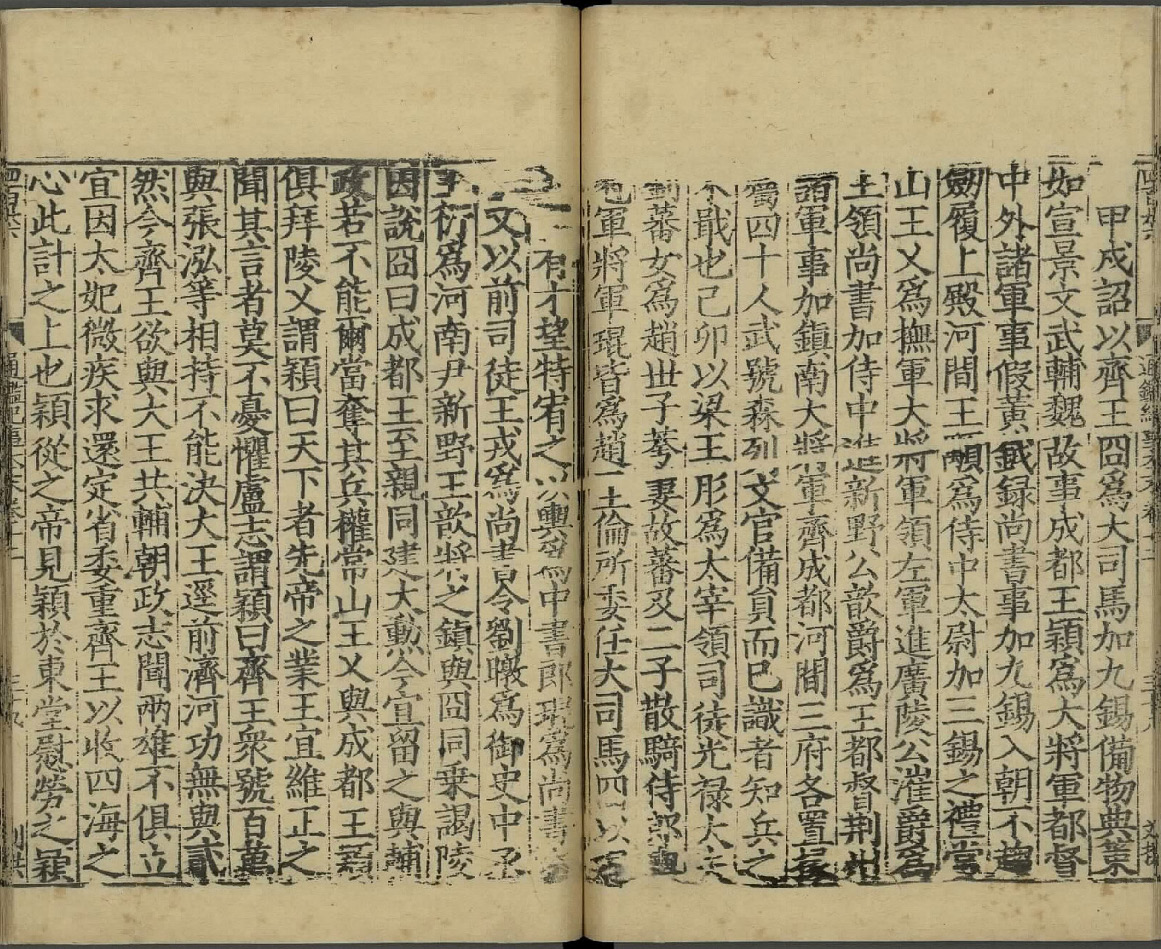 甲戍詔以齊王冏爲大司馬加九錫備物典策
如宣景文武輔魏故事成都王穎爲大將軍都督
中外諸軍事假黃鉞録尚書事加九錫入朝不趨
劔履上殿河間王顒爲侍中太尉加三錫之禮常
山王乂爲撫軍大將軍領左軍進廣陵公漼爵爲
王領尚書加侍中進新野公歆爵爲王都督荆州
諸軍事加鎮南大將軍齊成都河間三府各置掾
屬四十人武號森列文官備員而已識者知兵之
未戢也己卯以梁王肜爲太宰領司徒光禄大夫
劉蕃女爲趙世子荂妻故蕃及二子散騎侍郎輿
冠軍將軍琨皆爲趙王倫所委任大司馬冏以琨
有才望特宥之以輿爲中書郎琨爲尚書左
丞又以前司徒王戎爲尚書令劉暾爲御史中丞
王衍爲河南尹新野王歆將之鎮與冏同乗謁陵
因説冏曰成都王至親同建大勲今宜留之與輔
政若不能爾當奪其兵權常山王乂與成都王穎
俱拜陵乂謂穎曰天下者先帝之業王宜維正之
聞其言者莫不憂懼盧志謂穎曰齊王衆號百萬
與張泓等相持不能決大王逕前濟河功無與貳
然今齊王欲與大王共輔朝政志聞兩雄不俱立
宣因太妃微疾求還定省委重齊王以收四海之
心此計之上也穎從之帝見穎於東堂慰勞之穎